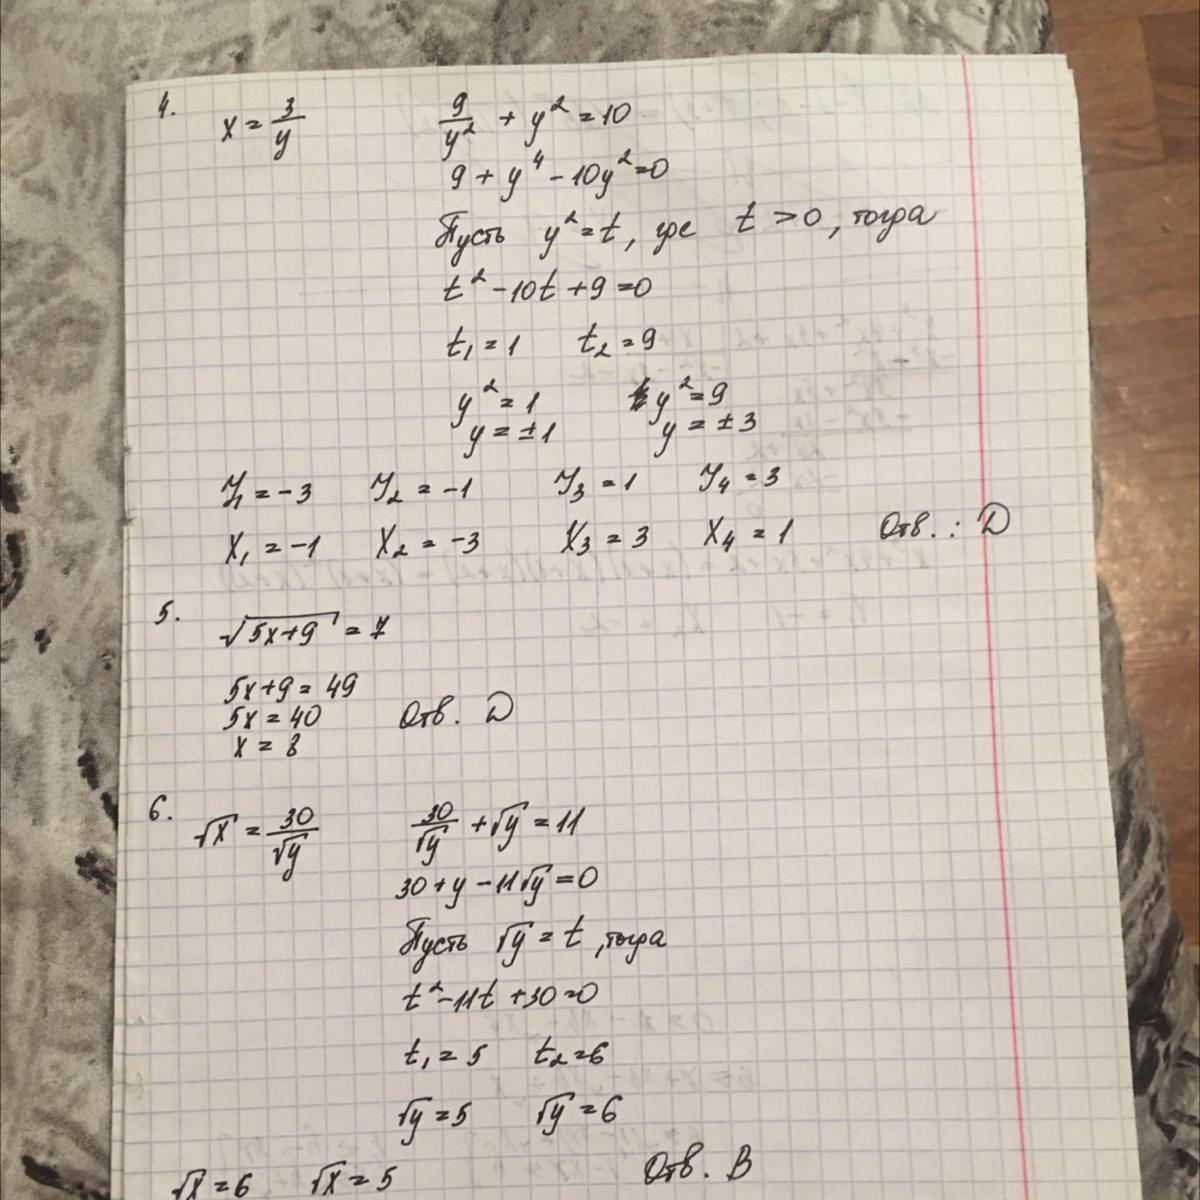 4. x = 3/y
9/y² + y² = 10
9 + y⁴ - 10y² = 0
Пусть y² = t, где t > 0, тогда
t² - 10t + 9 = 0
t₁ = 1 t₂ = 9
y² = 1 y² = 9
y = ±1 y = ±3
y₁ = -3 y₂ = -1 y₃ = 1 y₄ = 3
x₁ = -1 x₂ = -3 x₃ = 3 x₄ = 1 Отв.: D
5. √(5x+9) = 7
5x + 9 = 49
5x = 40 Отв. D
x = 8
6. √x = 30/√y
30/√y + √y = 11
30 + y - 11√y = 0
Пусть √y = t, тогда
t² - 11t + 30 = 0
t₁ = 5 t₂ = 6
√y = 5 √y = 6
√x = 6 √x = 5 Отв. B